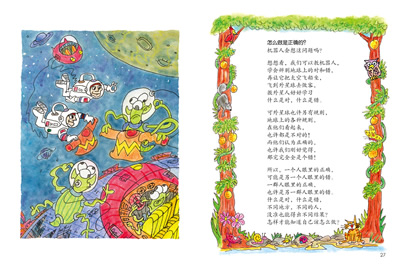 怎么做是正确的？
机器人会想这问题吗？
想想看，我们可以教机器人，
学会辨别地球上的对和错，
再让它把太空飞船坐，
飞到外星球去做客，
教外星人好好学习
什么是对，什么是错。
可外星球也许另有规则，
地球上的各种规则，
在他们看起来，
也许都是不对的！
而他们认为正确的，
也许我们刚好觉得，
那完完全全是个错！
所以，一个人眼里的正确，
可能是另一个人眼里的错，
一群人眼里的正确，
也许是另一群人眼里的错。
什么是对，什么是错，
不同地方，不同的人，
没准也能得出不同结果？
怎样才能知道自己该怎么做？
27